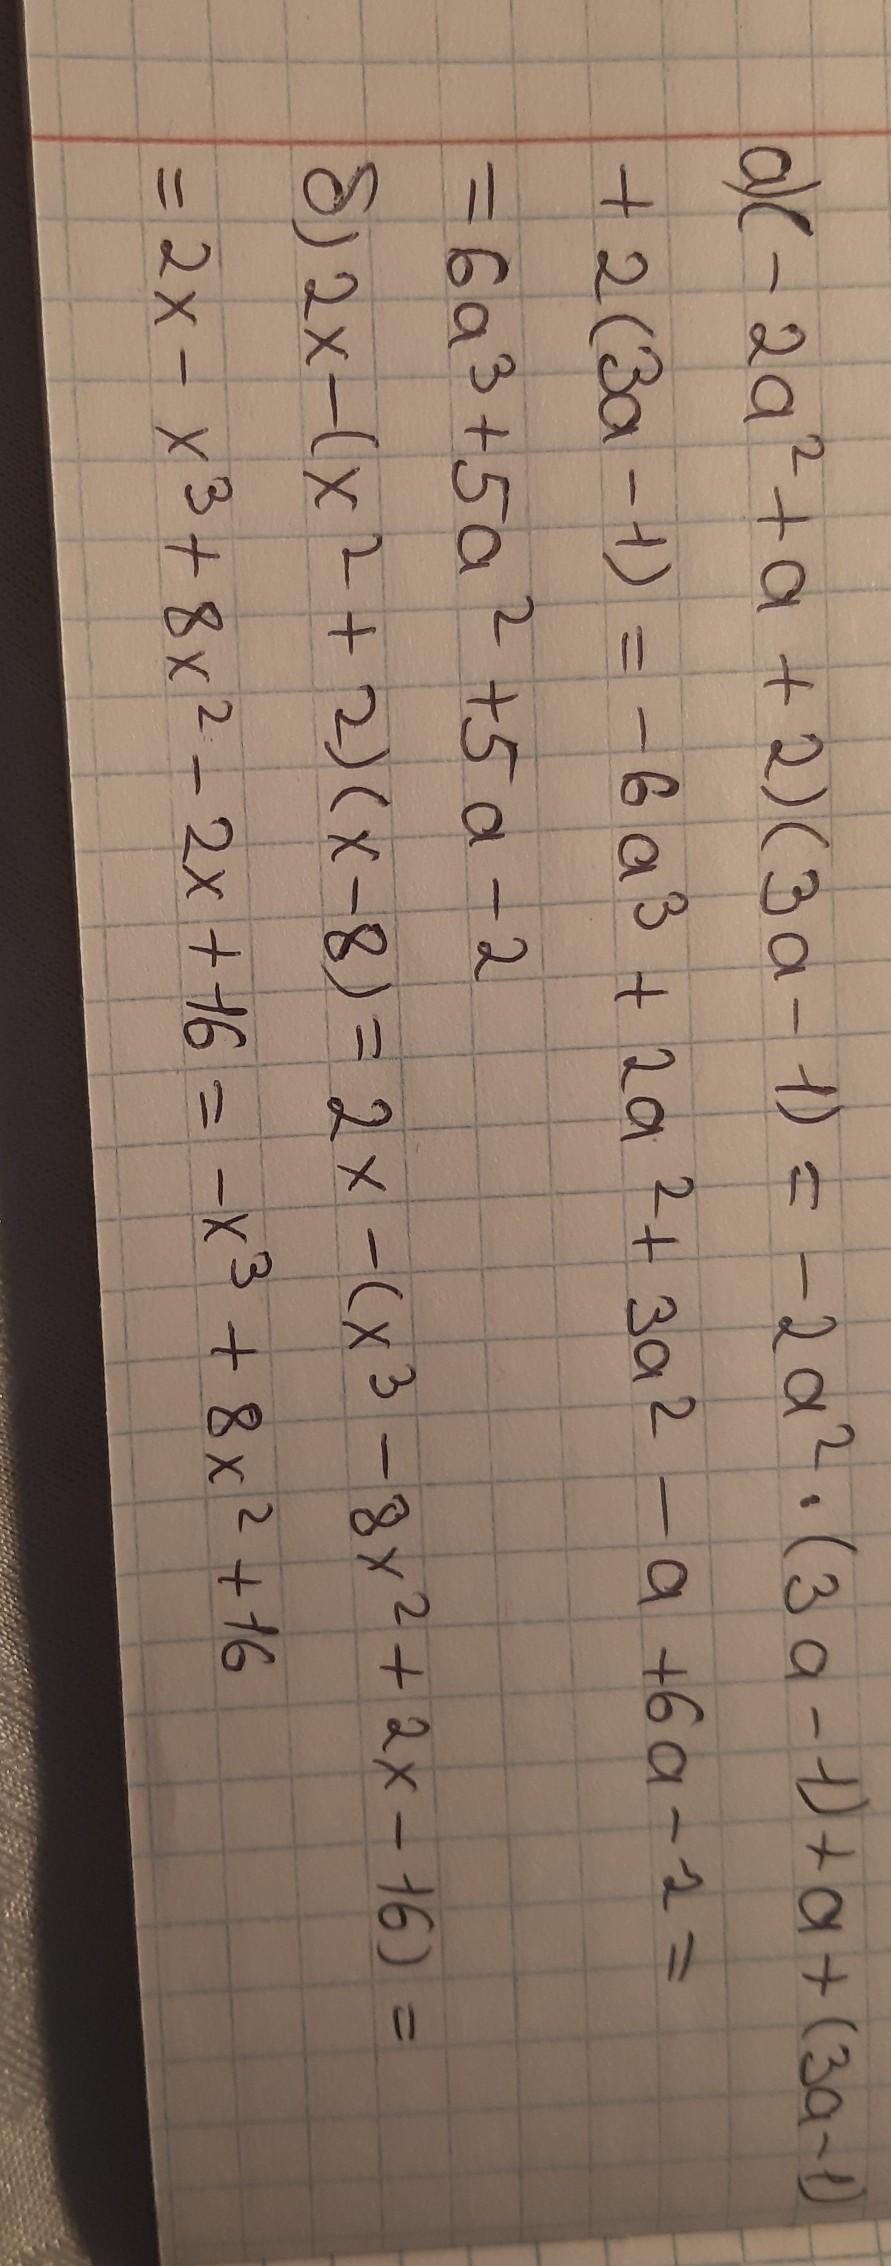 а)(-2a²+a+2)(3a-1)=-2a²·(3a-1)+a+(3a-1)
+2(3a-1)=-6a³+2a²+3a²-a+6a-2=
=6a³+5a²+5a-2
б)2x-(x²+2)(x-8)=2x-(x³-8x²+2x-16)=
=2x-x³+8x²-2x+16=-x³+8x²+16